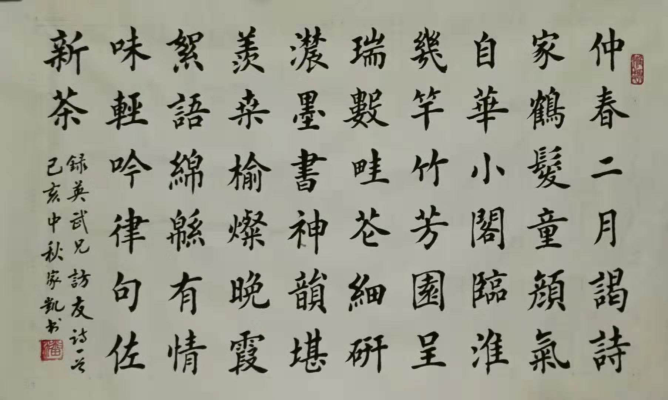 仲春二月謁詩
家鶴髮童顔氣
自華小閣臨淮
幾竿竹芳園呈
瑞數畦花細研
濃墨書神韻堪
羨桑榆燦晚霞
絮語綿緜有情
味輕吟律句佐
新茶
録英武兄訪友詩一首
己亥中秋家凱书